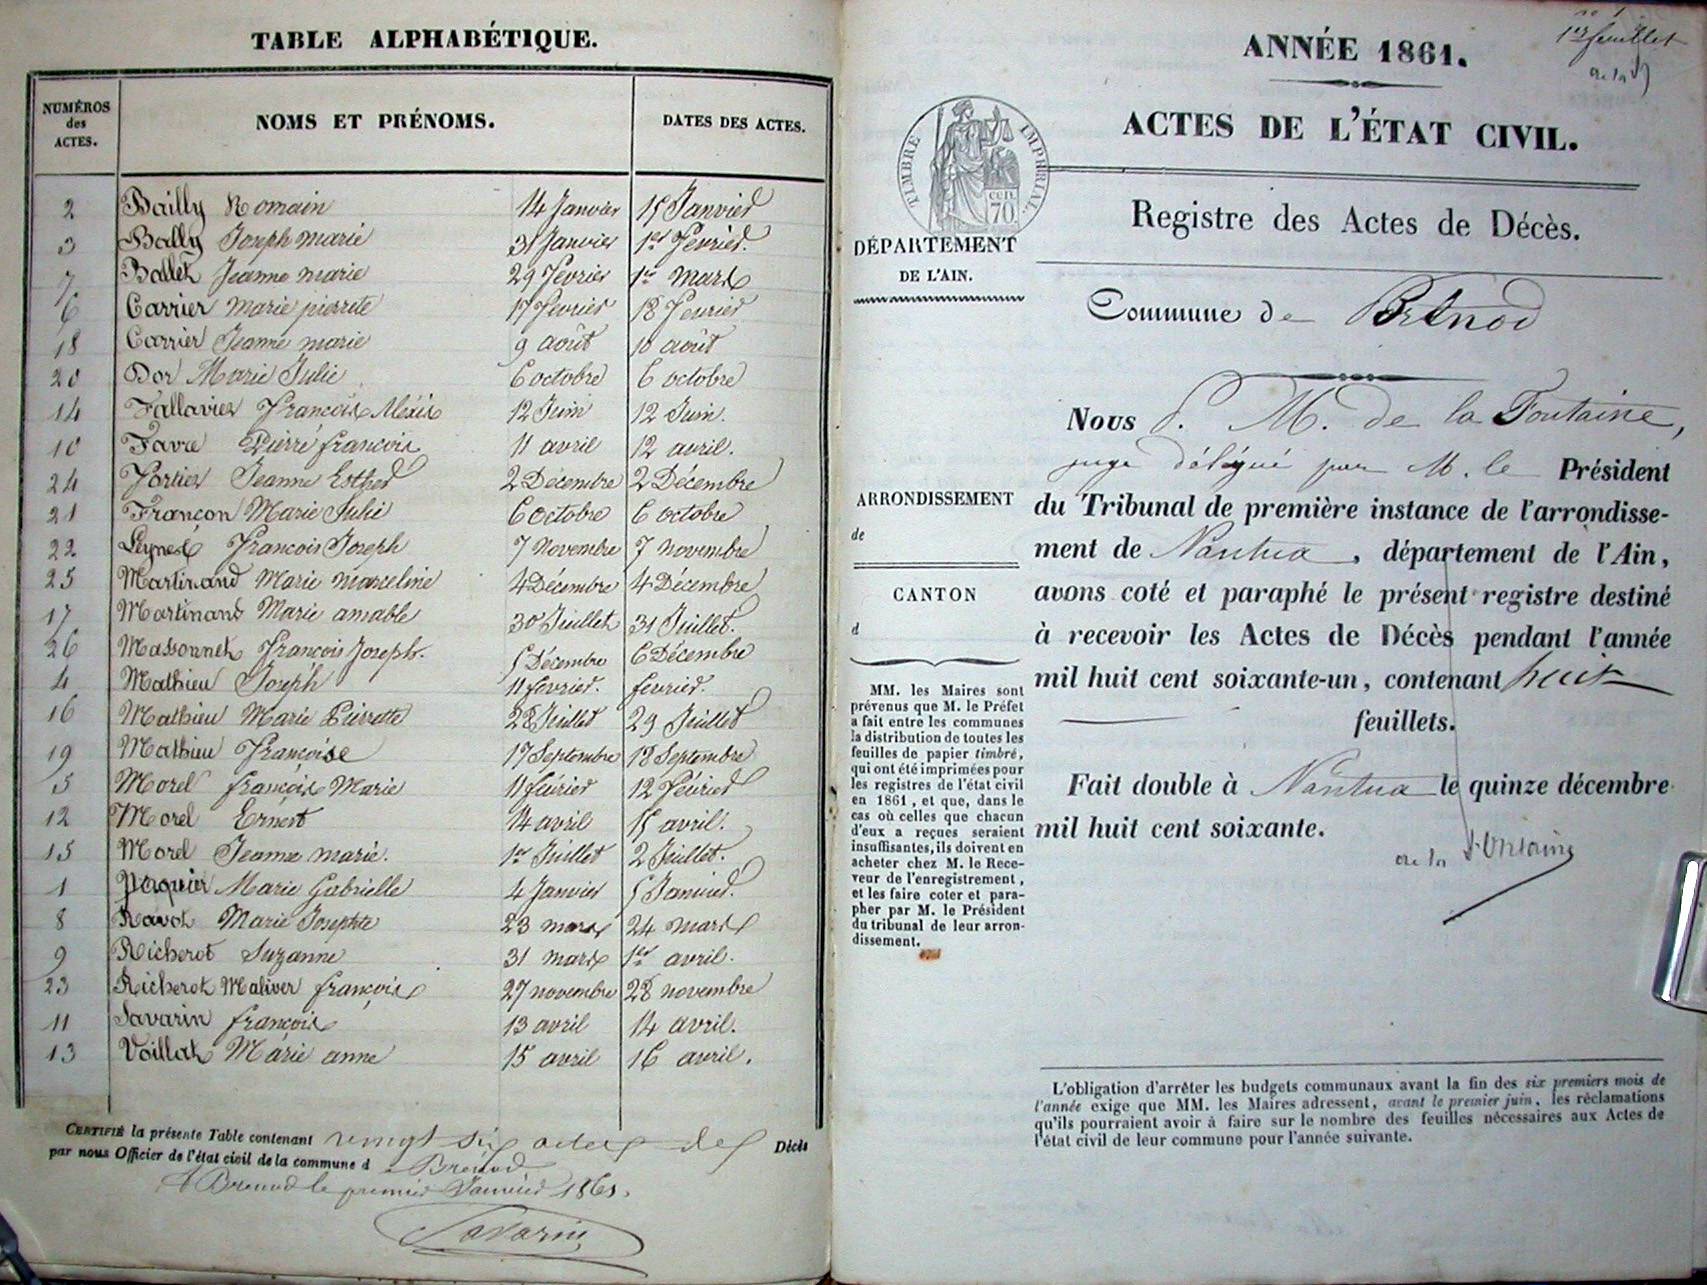 TABLE ALPHABÉTIQUE.
NUMÉROS des ACTES. NOMS ET PRÉNOMS. DATES DES ACTES.
2 Bailly Romain 14 Janvier 15 Janvier
3 Bally Joseph marie 31 Janvier 1er Fevrier.
7 Ballet Jeanne marie 29 Fevrier 1er Mars
6 Carrier Marie pierrete 17 Fevrier 18 Fevrier
18 Carrier Jeanne marie 9 août 10 août
20 Dor Marie Julie 6 octobre 6 octobre
14 Fallavier Francois Alexis 12 Juin 12 Juin.
10 Favre Pierre francois 11 avril 12 avril.
24 Fortier Jeanne Esther 2 Décembre 2 Décembre
21 Françon Marie Julie 6 Octobre 6 octobre
22 Francois Joseph 7 Novembre 7 novembre
25 Martinand Marie marceline 4 Décembre 4 Décembre
17 Martinand Marie amable 30 Juillet 31 Juillet.
26 Massonnet François Joseph. 5 Décembre 6 Décembre
4 Mathieu Joseph 11 fevrier. fevrier.
16 Mathieu Marie Pierrette 28 Juillet 29 Juillet
19 Mathieu Françoise 17 Septembre 18 Septembre
5 Morel françois Marie 11 février 12 Février
12 Morel Ernest 14 avril 15 avril.
15 Morel Jeanne marie. 1er Juillet 2 Juillet.
1 Marie Gabrielle 4 Janvier 5 Janvier.
8 Ravot Marie Josephte 23 mars 24 mars
9 Richerot Suzanne 31 mars 1er avril.
23 Richerot Maliver françois 27 novembre 28 novembre
11 Savarin françois 13 avril 14 avril.
13 Voillat Marie anne 15 avril 16 avril.
CERTIFIÉ la présente Table contenant vingt six actes de Décès
par nous Officier de l'état civil de la commune d e Brénod
A Brenod le premier Janvier 1861.
Savarin
no 1
1er feuillet
ANNÉE 1861.
ACTES DE L'ÉTAT CIVIL.
TIMBRE IMPERIAL.
CEN. 70
Registre des Actes de Décès.
DÉPARTEMENT
DE L'AIN.
Commune de Brénod
Nous P. M. de la Fontaine,
juge délégué par M. le Président
du Tribunal de première instance de l'arrondisse-
ment de Nantua, département de l'Ain,
avons coté et paraphé le présent registre destiné
à recevoir les Actes de Décès pendant l'année
mil huit cent soixante-un, contenant huit
feuillets.
Fait double à Nantua le quinze décembre
mil huit cent soixante.
de la Fontaine
ARRONDISSEMENT
de
CANTON
d
MM. les Maires sont
prévenus que M. le Préfet
a fait entre les communes
la distribution de toutes les
feuilles de papier timbré,
qui ont été imprimées pour
les registres de l'état civil
en 1861, et que, dans le
cas où celles que chacun
d'eux a reçues seraient
insuffisantes, ils doivent en
acheter chez M. le Rece-
veur de l'enregistrement,
et les faire coter et para-
pher par M. le Président
du tribunal de leur arron-
dissement.
L'obligation d'arrêter les budgets communaux avant la fin des six premiers mois de
l'année exige que MM. les Maires adressent, avant le premier juin, les réclamations
qu'ils pourraient avoir à faire sur le nombre des feuilles nécessaires aux Actes de
l'état civil de leur commune pour l'année suivante.